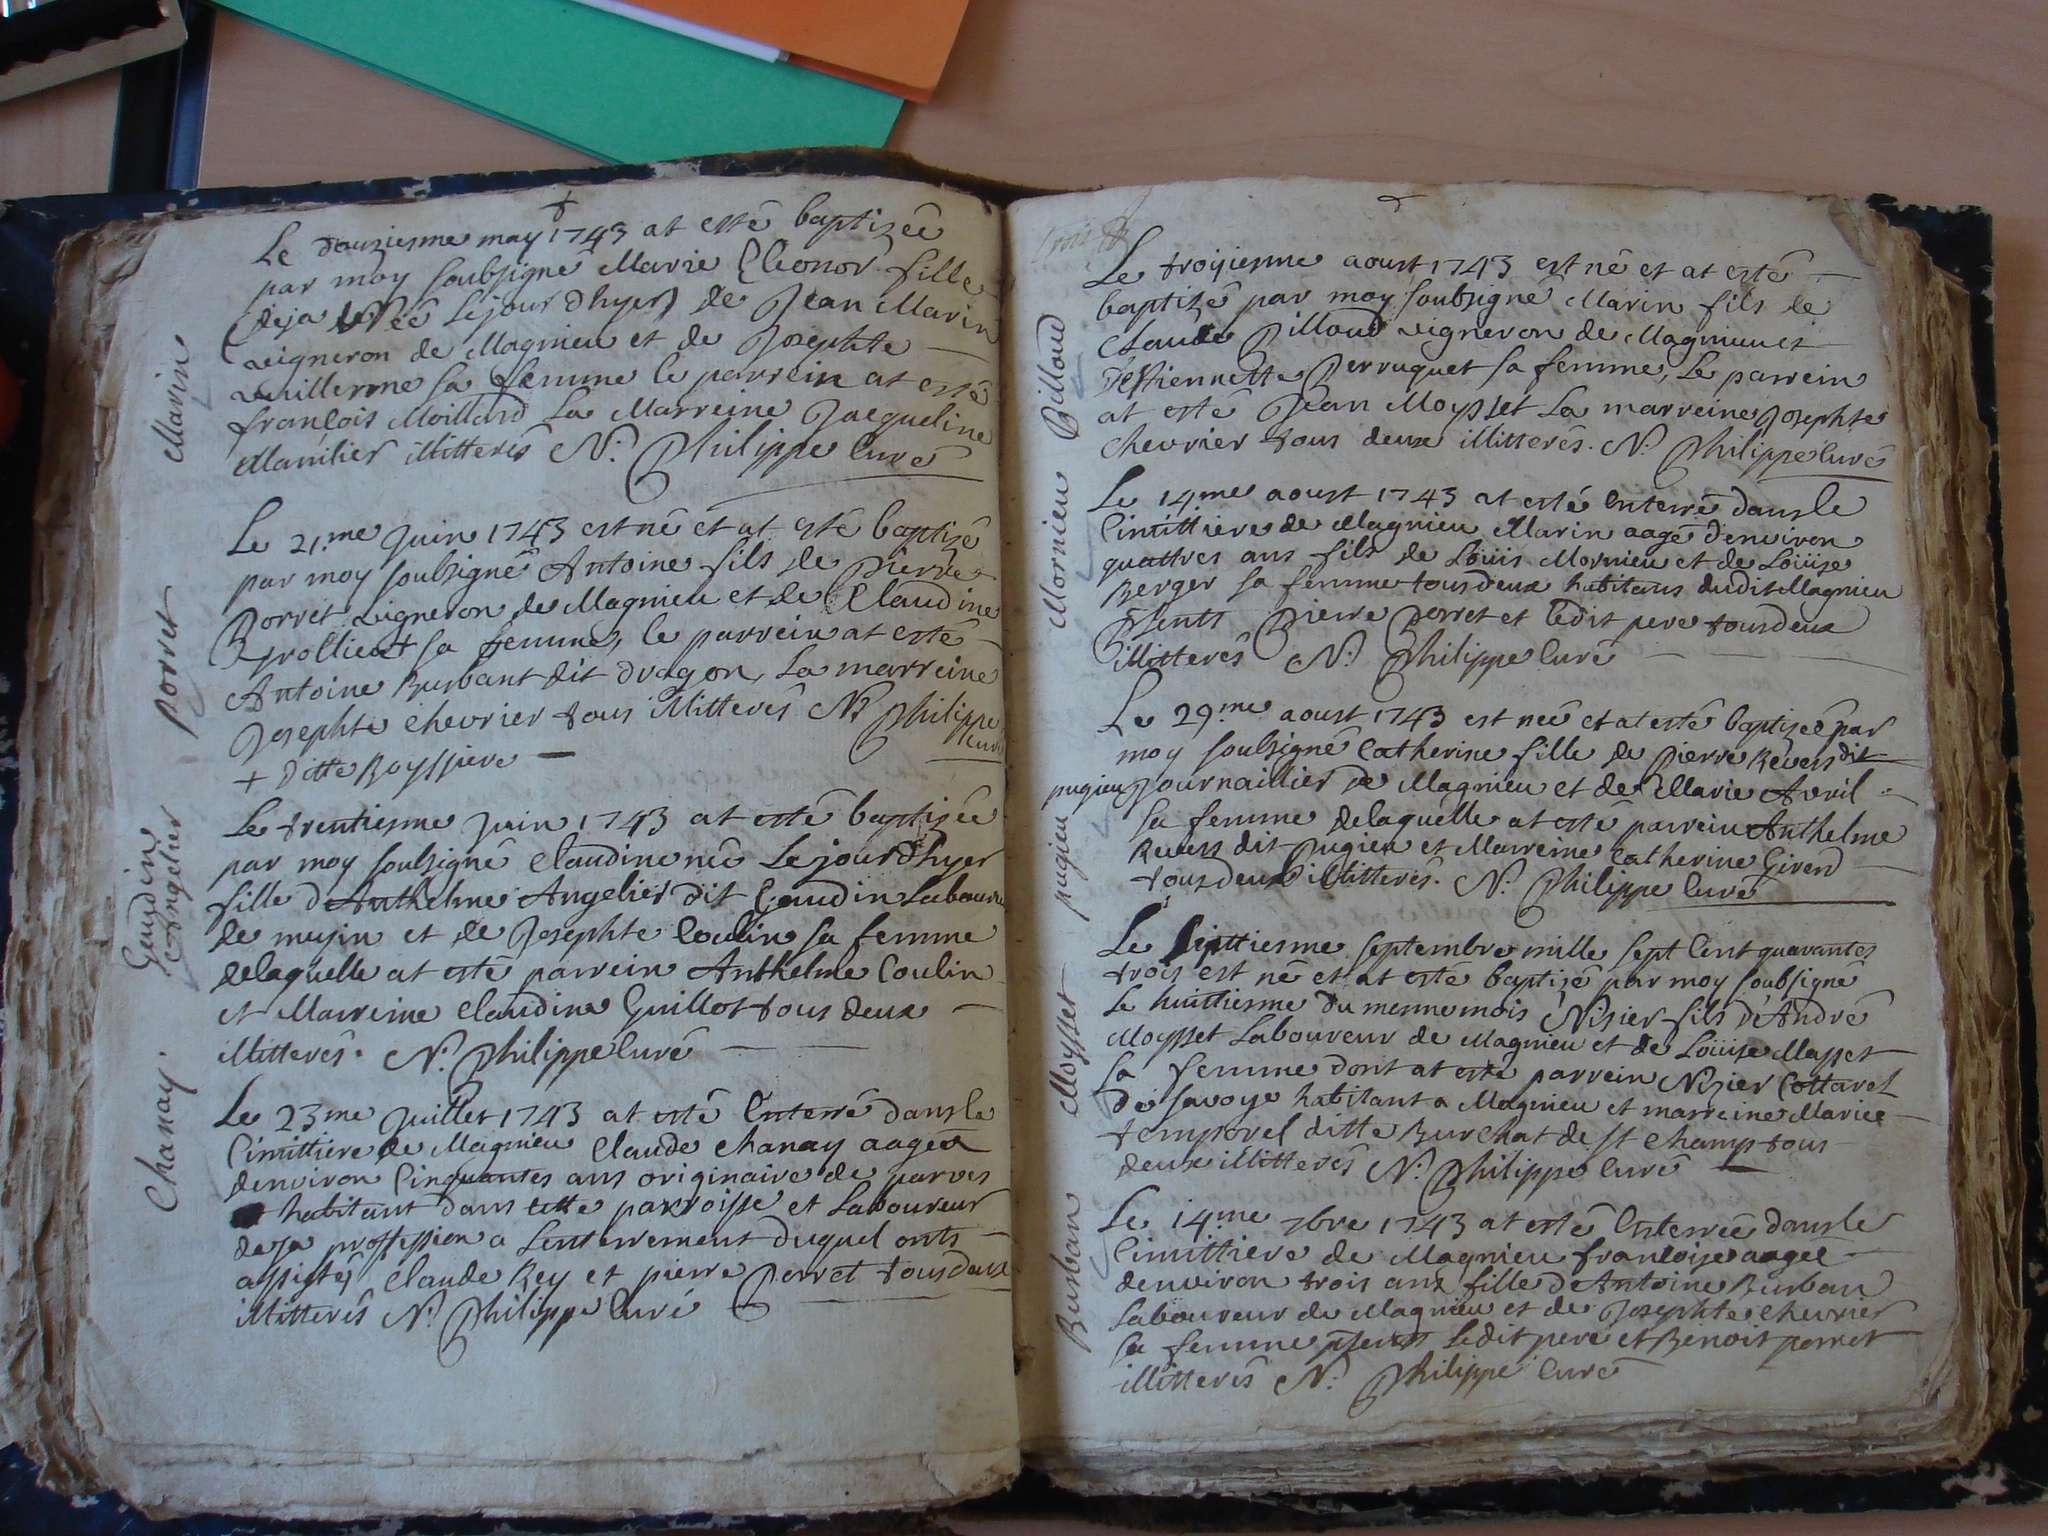 Marin
Le douziesme may 1743 at esté baptizeé
par moy soubsigné Marie Eleonor fille
(deja neé le jour dhyer) de Jean Marin
vigneron de Magnieu et de Josephte
vuillerme sa femme le parrein at esté
françois Moillard La Marreine Jacqueline
Manilier illitterés N. Philippe Curé
Porret
Le 21.me Juin 1743 est né et at esté baptizé
par moy soubsigné Antoine fils de Pierre
Porret vigneron de Magnieu et de Claudine
Grollier + sa femme, le parrein at esté
Antoine Burbant dit dragon, La marreine
Josephte chevrier tous illitterés N. Philippe
Curé
+ ditte Boyssiere
Gendin
Angelier
Le trentiesme Juin 1743 at esté baptizée
par moy soubsigné Claudine neé Le jour dhyer
fille d'Anthelme Angelier dit Gendin Laboureur
de musin et de Josephte Coulin sa femme
delaquelle at esté parrein Anthelme Coulin
et Marreine Claudine Guillot tous deux
illitterés. N. Philippe Curé
Chanay.
Le 23me Juillet 1743 at esté Enterré dans le
Cimittiere de Magnieu Claude Chanay aagé
denviron Cinquantes ans originaire de parves
habitant dans cette parroisse et Laboureur
de sa proffession a Lenterrement duquel onts
assistés Claude Rey et pierre Perret tous deux
illitterés N. Philippe Curé
Billoud
Le troisiesme aoust 1743 est né et at esté
baptizé par moy soubsigné Marin fils de
Claude Billoud vigneron de Magnieu et
d'Estiennette Perruquet sa femme, Le parrein
at esté Jean Moysset La marreine Josephte
Chevrier tous deux illitterés. N. Philippe Curé
Mornieu
Le 14.me aoust 1743 at esté Enterré dans le
Cimittiere de Magnieu Marin aagé denviron
quattres ans fils de Loüis Mornieu et de Loüise
Berger sa femme tous deux habitans dudit Magnieu
Psents Pierre Porret et Ledit pere tous deux
illitterés N. Philippe Curé
pugieu
Le 29.me aoust 1743 est neé et at esté baptizeé par
moy soubsigné Catherine fille de Pierre Revers dit
pugieu Journaillier de Magnieu et de Marie Avril
sa femme delaquelle at esté parrein Anthelme
Revers dit Pugieu et Marreine Catherine Girerd
tous deux illitterés. N. Philippe Curé
Moysset
Le septiesme septembre mille sept Cent quarantes
trois est né et at esté baptizé par moy soubsigné
Le huittiesme du mesme mois Nisier fils d'André
Moysset Laboureur de Magnieu et de Loüise Masset
Sa femme dont at esté parrein Nisier Cottarel
de savoye habitant a Magnieu et marreine Marie
temporel ditte Burchat de st Champ tous
deux illitterés N. Philippe Curé
Burban
Le 14.me 7bre 1743 at esté Enterreé dans le
Cimittiere de Magnieu françoise aageé
denviron trois ans fille d'Antoine Burban
Laboureur de Magnieu et de Josephte Chevrier
sa femme psents Ledit pere et Benoit perret
illitterés N. Philippe Curé